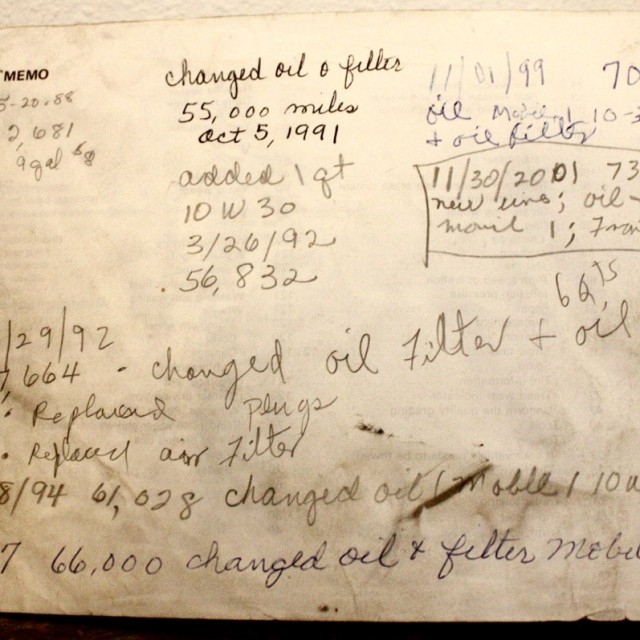 MEMO
5-20-88
2,681
9gal
changed oil & filter
55,000 miles
Oct 5, 1991
added 1 qt
10 W 30
3/26/92
56,832
11/01/99 70
oil Mobil 1 10-3
+ oil filter
11/30/2001 73
new ; oil -
Mobil 1 ;
6 qts
/29/92
7,664 - changed oil Filter + oil
• Replaced plugs
• Replaced air Filter
8/94 61,028 changed oil ( Moble 1 10 w
7 66,000 changed oil & filter Mobil